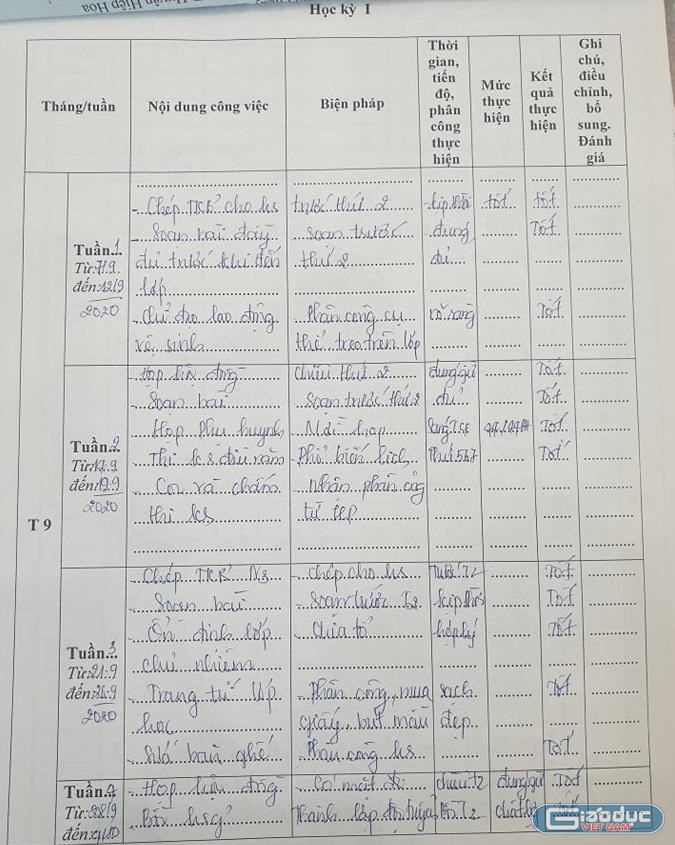 Học kỳ I
Tháng/tuần
Nội dung công việc
Biện pháp
Thời gian, tiến độ, phân công thực hiện
Mức thực hiện
Kết quả thực hiện
Ghi chú, điều chỉnh, bổ sung. Đánh giá
T 9
Tuần.1.
Từ:7/9.
đến:12/9
2020
- Chép TKB cho hs trước thứ 2 tốt tốt
- Soạn bài đầy soạn trước đúng Tốt
đủ trước khi đến thứ 2 đủ
lớp
Chỉ đạo lao động Phân công cụ rõ ràng Tốt
vệ sinh thể treo trên lớp
Tuần.2
Từ:
đến:19.9
2020
- Họp liên đông chiều thứ 2 đúng giờ Tốt
- Soạn bài Soạn trước thứ 2 đủ Tốt
- Họp Phụ huynh - Mời họp Sáng Tốt
- Thi k s đầu năm - Phổ biến lịch Tốt
- Coi và chấm - Nhận phân công
thi ks từ
Tuần.3
Từ:21.9
đến:26.9
2020
- Chép TKB N3 - Chép cho hs trước T2 Tốt
- Soạn bài - Soạn trước T2 kịp thời Tốt
- Ổn định lớp - Chia tổ hợp lý Tốt
chủ nhiệm
- Trang trí lớp - Phân công, mua sạch Tốt
học giấy, bút màu đẹp
- Sửa bàn ghế - Phân công hs Tốt
Tuần.4
Từ:28/9
đến:
- Họp liên đông - Có mặt đủ chiều T2 đúng giờ Tốt
- Bd hsg Thành lập đội tuyển
Giáodục
VIỆT NAM